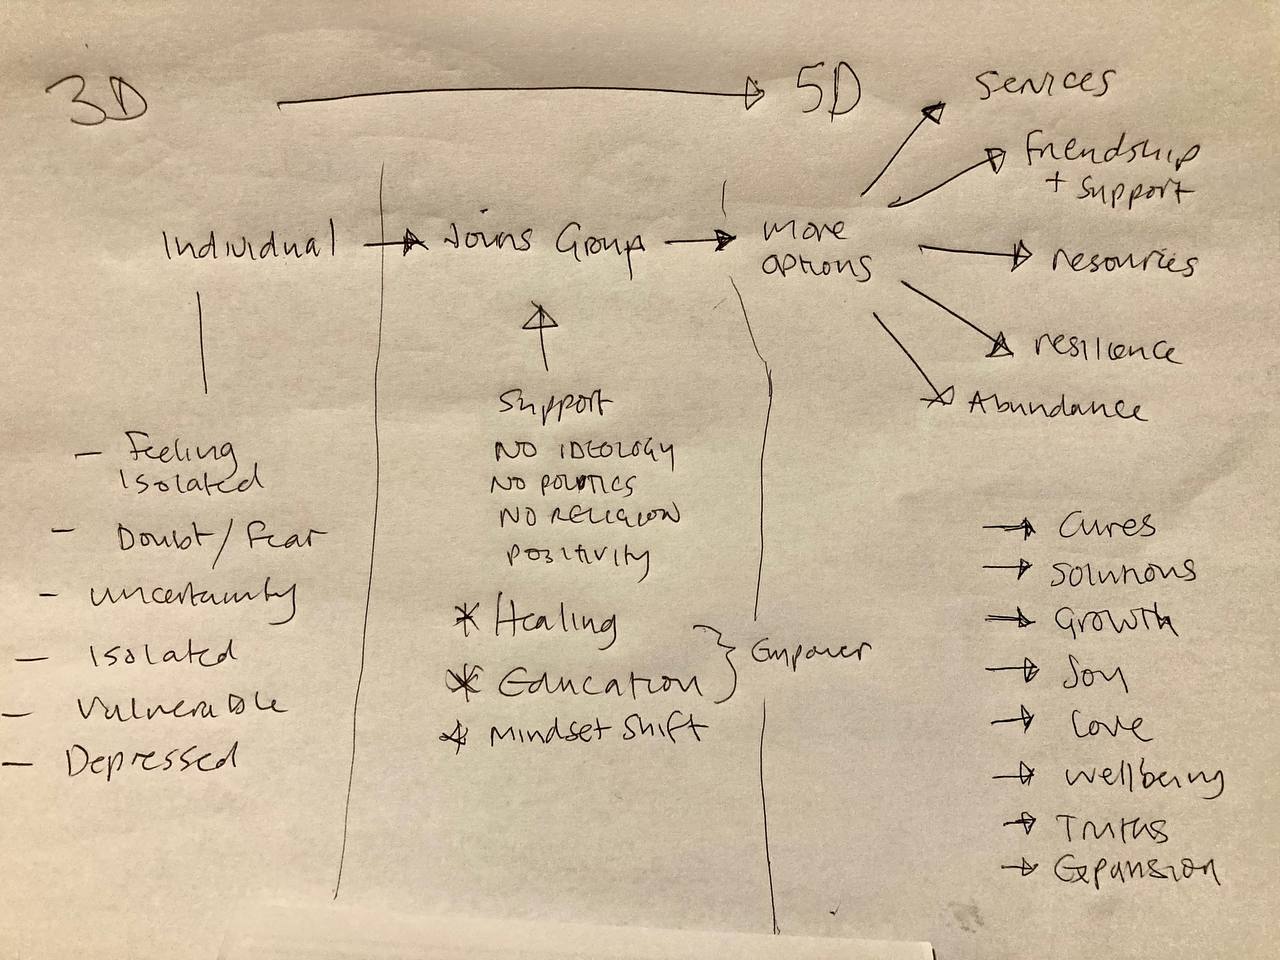 3D
5D
Individual
Joins Group
more
options
Services
Friendship
+ support
resources
resilience
Abundance
- Feeling
Isolated
- Doubt/fear
- uncertainty
- Isolated
- Vulnerable
- Depressed
Support
NO IDEOLOGY
NO POLITICS
NO RELIGION
positivity
* Healing
* Education
* Mindset shift
Empower
Cures
Solutions
Growth
Joy
Love
Wellbeing
Truths
Expansion